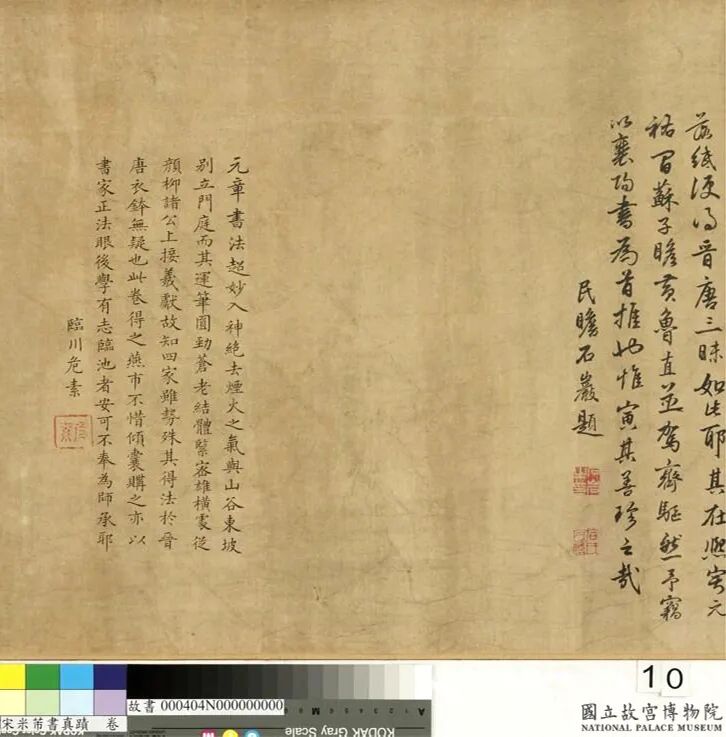 落紙便得晉唐三昧如此耶其在熙寧元
祐間蘇子瞻黃魯直並駕齊驅然予竊
以襄陽書為首推也惟寅其善珍之哉
民瞻石巖題
元章書法超妙入神絶去煙火之氣與山谷東坡
別立門庭而其運筆圓勁蒼老結體緊密雄橫處從
顏柳諸公上接羲獻故知四家雖勢殊其得法於晉
唐衣鉢無疑也此卷得之燕市不惜傾囊購之亦以
書家正法眼後學有志臨池者安可不奉為師承耶
臨川危素
危素
10
故書 000404N000000000
宋米芾書真蹟 卷
KODAK Gray Scale
國立故宮博物院
NATIONAL PALACE MUSEUM